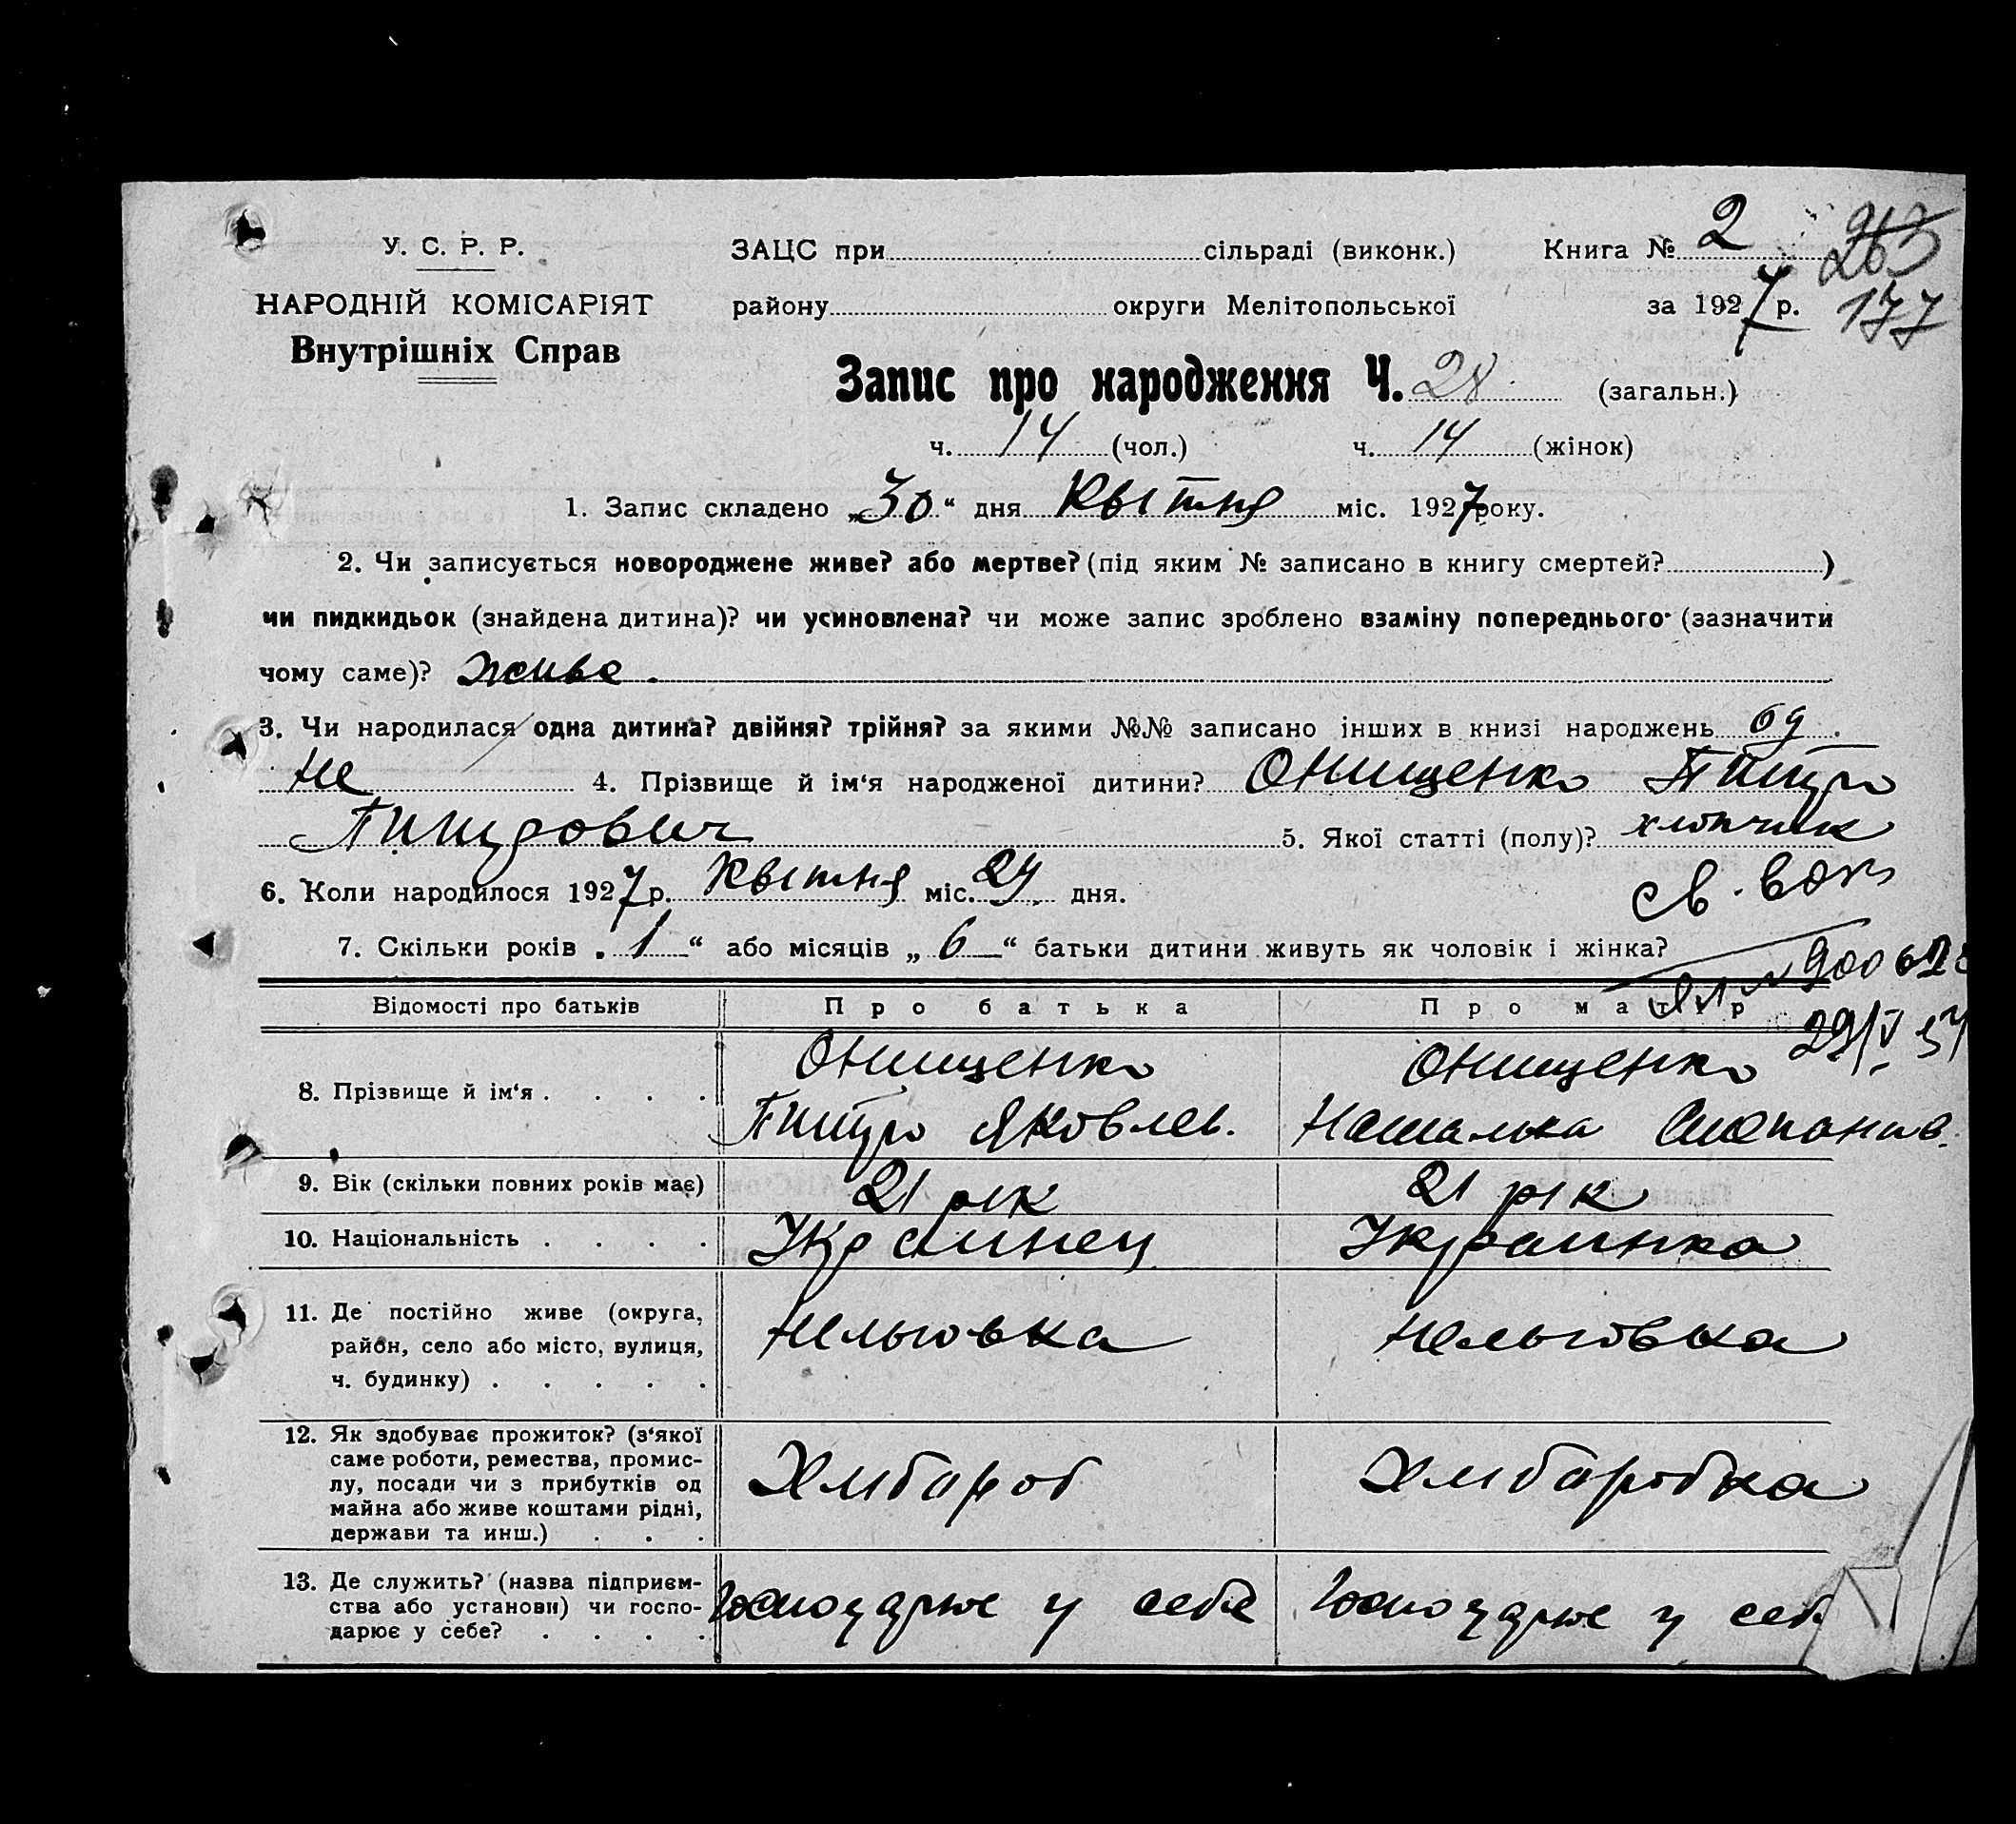 У. С. Р. Р.
НАРОДНІЙ КОМІСАРІЯТ
Внутрішніх Справ
ЗАЦС при сільраді (виконк.) Книга № 2
району округи Мелітопольської за 1927 р.
263
177
Запис про народження Ч. 28 (загальн.)
ч. 14 (чол.) ч. 14 (жінок)
1. Запис складено „30“ дня Квытня міс. 1927 року.
2. Чи записується новороджене живе? або мертве? (під яким № записано в книгу смертей? )
чи пидкидьок (знайдена дитина)? чи усиновлена? чи може запис зроблено взаміну попереднього (зазначити
чому саме)? живе.
3. Чи народилася одна дитина? двійня? трійня? за якими №№ записано інших в книзі народжень од
не 4. Прізвище й ім‘я народженої дитини? Онищенко Питро
Питрович 5. Якої статті (полу)? хлопчик
6. Коли народилося 1927 р. Квытня міс. 24 дня.
св.
7. Скільки років „1“ або місяців „6“ батьки дитини живуть як чоловік і жінка?
29/V 57
Відомості про батьків Про батька Про матір
8. Прізвище й ім‘я . . . . Онищенко Онищенко
Питро Яковлев. Наталька Степанив.
9. Вік (скільки повних років має) 21 рік 21 рік
10. Національність . . . . Украинец Украинка
11. Де постійно живе (округа,
район, село або місто, вулиця,
ч. будинку) . . . . . Нельговка Нельговка
12. Як здобуває прожиток? (з‘якої
саме роботи, ремества, промис-
лу, посади чи з прибутків од
майна або живе коштами рідні,
держави та инш.) . . . Хлибороб Хлиборобка
13. Де служить? (назва підприєм-
ства або установи) чи госпо-
дарює у себе? . . . . Господарює у себе Господарює у себ